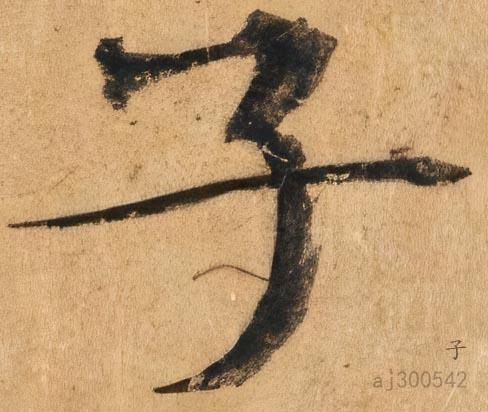 子
子
aj300542